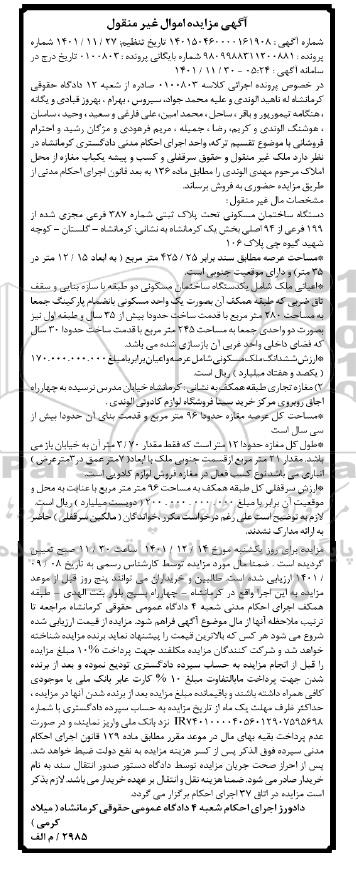 آگهی مزایده اموال غیر منقول
شماره آگهی : ۱۴۰۱۵۰۴۶۰۰۰۰۱۶۱۹۰۸ تاریخ تنظیم: ۲۷ / ۱۱ / ۱۴۰۱ شماره
پرونده : ۹۸۰۹۹۸۸۳۱۱۲۰۰۸۸۱ شماره بایگانی پرونده : ۰۱۰۰۸۰۳ تاریخ درج در
سامانه آگهی : ۰۵:۲۴ - ۳۰ / ۱۱ / ۱۴۰۱
در خصوص پرونده اجرائی کلاسه ۰۱۰۰۸۰۳ صادره از شعبه ۱۲ دادگاه حقوقی
کرمانشاه له ناهید الوندی و علیه محمد جواد، سیروس ، بهرام ، بهروز قبادی و یگانه
، هنگامه تیمورپور و باقر ، ساحل ، محمد امین، علی فارغی و سعید ، وحید ، ساسان
، هوشنگ الوندی و کریم، رضا ، جمیله ، مریم فرهودی و مژگان رشید و احترام
فروشانی با موضوع تقسیم ترکه، واحد اجرای احکام مدنی دادگستری کرمانشاه در
نظر دارد ملک غیر منقول و حقوق سرقفلی و کسب و پیشه یکباب مغازه از محل
املاک مرحوم مهدی الوندی را مطابق ماده ۱۲۶ به بعد قانون اجرای احکام مدنی از
طریق مزایده حضوری به فروش برساند.
مشخصات مال غیر منقول :
دستگاه ساختمان مسکونی تحت پلاک ثبتی شماره ۳۸۷ فرعی مجزی شده از
۱۹۹ فرعی از ۹۴ اصلی بخش یک کرمانشاه به نشانی: کرمانشاه – گلستان – کوچه
شهید گیوه چی پلاک ۱۰۶
*مساحت عرصه مطابق سند برابر ۲۵ / ۴۲۵ متر مربع ( به ابعاد ۱۵ / ۱۲ متر در
۳۵ متر) و دارای موقعیت جنوبی است.
*اعیانی ملک شامل یکدستگاه ساختمان مسکونی دو طبقه با سازه بنایی و سقف
تاق ضربی که طبقه همکف آن بصورت یک واحد مسکونی بانضمام پارکینگ جمعا
به مساحت ۲۸۰ متر مربع با قدمت ساخت حدودا بیش از ۳۵ سال و طبقه اول نیز
بصورت دو واحدی جمعا به مساحت ۲۴۵ متر مربع با قدمت ساخت حدودا ۳۰ سال
که فضای داخلی واحد غربی آن بازسازی شده می باشد.
*ارزش ششدانگ ملک مسکونی شامل عرصه و اعیان برابر با مبلغ ۱۷۰.۰۰۰.۰۰۰.۰۰۰
( یکصد و هفتاد میلیارد ) ریال است.
۲) مغازه تجاری طبقه همکف به نشانی: کرمانشاه خیابان مدرس نرسیده به چهارراه
اجاق روبروی مرکز خرید سینا فروشگاه لوازم کادوئی الوندی .
*مساحت کل عرصه مغازه حدودا ۹۶ متر مربع و قدمت بنای آن حدودا بیش از
سی سال است
*طول کل مغازه حدودا ۱۲ متر است که فقط مقدار ۷۰ / ۳ متر آن به خیابان باز می
باشد. مقدار ۲۱ متر مربع از قسمت جنوبی ملک با ابعاد (۷متر عمق در ۳ متر عرض )
انباری می باشد نوع کسب فعال در مغازه فروش لوازم کادویی است.
*ارزش سرقفلی کل طبقه همکف به مساحت ۹۶ متر متر مربع با عنایت به محل و
موقعیت آن برابر با مبلغ ۲۰۰.۰۰۰.۰۰۰.۰۰۰ ( دویست میلیارد ) ریال است.
لازم به توضیح است علی رغم درخواست مکرر ،خواندگان ( مالکین سرقفلی ) حاضر
به ارائه مدارک نشدند.
مزایده برای روز یکشنبه مورخ ۱۴ / ۱۲ / ۱۴۰۱ ساعت ۳۰ / ۱۱ صبح تعیین
گردیده است . ضمنا مال مورد مزایده توسط کارشناس رسمی به تاریخ ۰۸ / ۰۹
/ ۱۴۰۱ ارزیابی شده است. طالبین و خریداران می توانند پنج روز قبل از موعد
مزایده به این اجرا واقع در کرمانشاه – چهارراه بسیج بلوار بنت الهدی – طبقه
همکف اجرای احکام مدنی شعبه ۴ دادگاه عمومی حقوقی کرمانشاه مراجعه تا
ترتیب ملاحظه آنها از مال موضوع آگهی فراهم شود. مزایده از قیمت ارزیابی شده
شروع می شود هر کس که بالاترین قیمت را پیشنهاد نماید برنده مزایده شناخته
خواهد شد و شرکت کنندگان مزایده مکلفند جهت پرداخت ۱۰% مبلغ مزایده
را قبل از انجام مزایده به حساب سپرده دادگستری تودیع نموده و بعد از برنده
شدن جهت پرداخت مابالتفاوت مبلغ ۱۰ % کارت عابر بانک ملی با موجودی
کافی همراه داشته باشند و باقیمانده مبلغ مزایده بعد از برنده شدن آنها در مزایده ،
حداکثر ظرف مهلت یک ماه از تاریخ مزایده به حساب سپرده دادگستری با شماره
IR۷۴۰۱۰۰۰۰۴۰۵۶۰۱۲۹۰۷۵۹۵۶۹۸ نزد بانک ملی واریز نمایند، و در صورت
عدم پرداخت بقیه بهای مال در موعد مقرر مطابق ماده ۱۲۹ قانون اجرای احکام
مدنی سپرده فوق الذکر پس از کسر هزینه مزایده به نفع دولت ضبط خواهد شد.
پس از احراز صحت جریان مزایده توسط دادگاه دستور صدور انتقال سند به نام
خریدار صادر می شود. ضمنا هزینه نقل و انتقال بر عهده خریدار می باشد. لازم بذکر
است مزایده در اتاق ۳۷ اجرای احکام برگزار می گردد.
دادورز اجرای احکام شعبه ۴ دادگاه عمومی حقوقی کرمانشاه ( میلاد
کرمی )
۲۹۸۵ / م الف